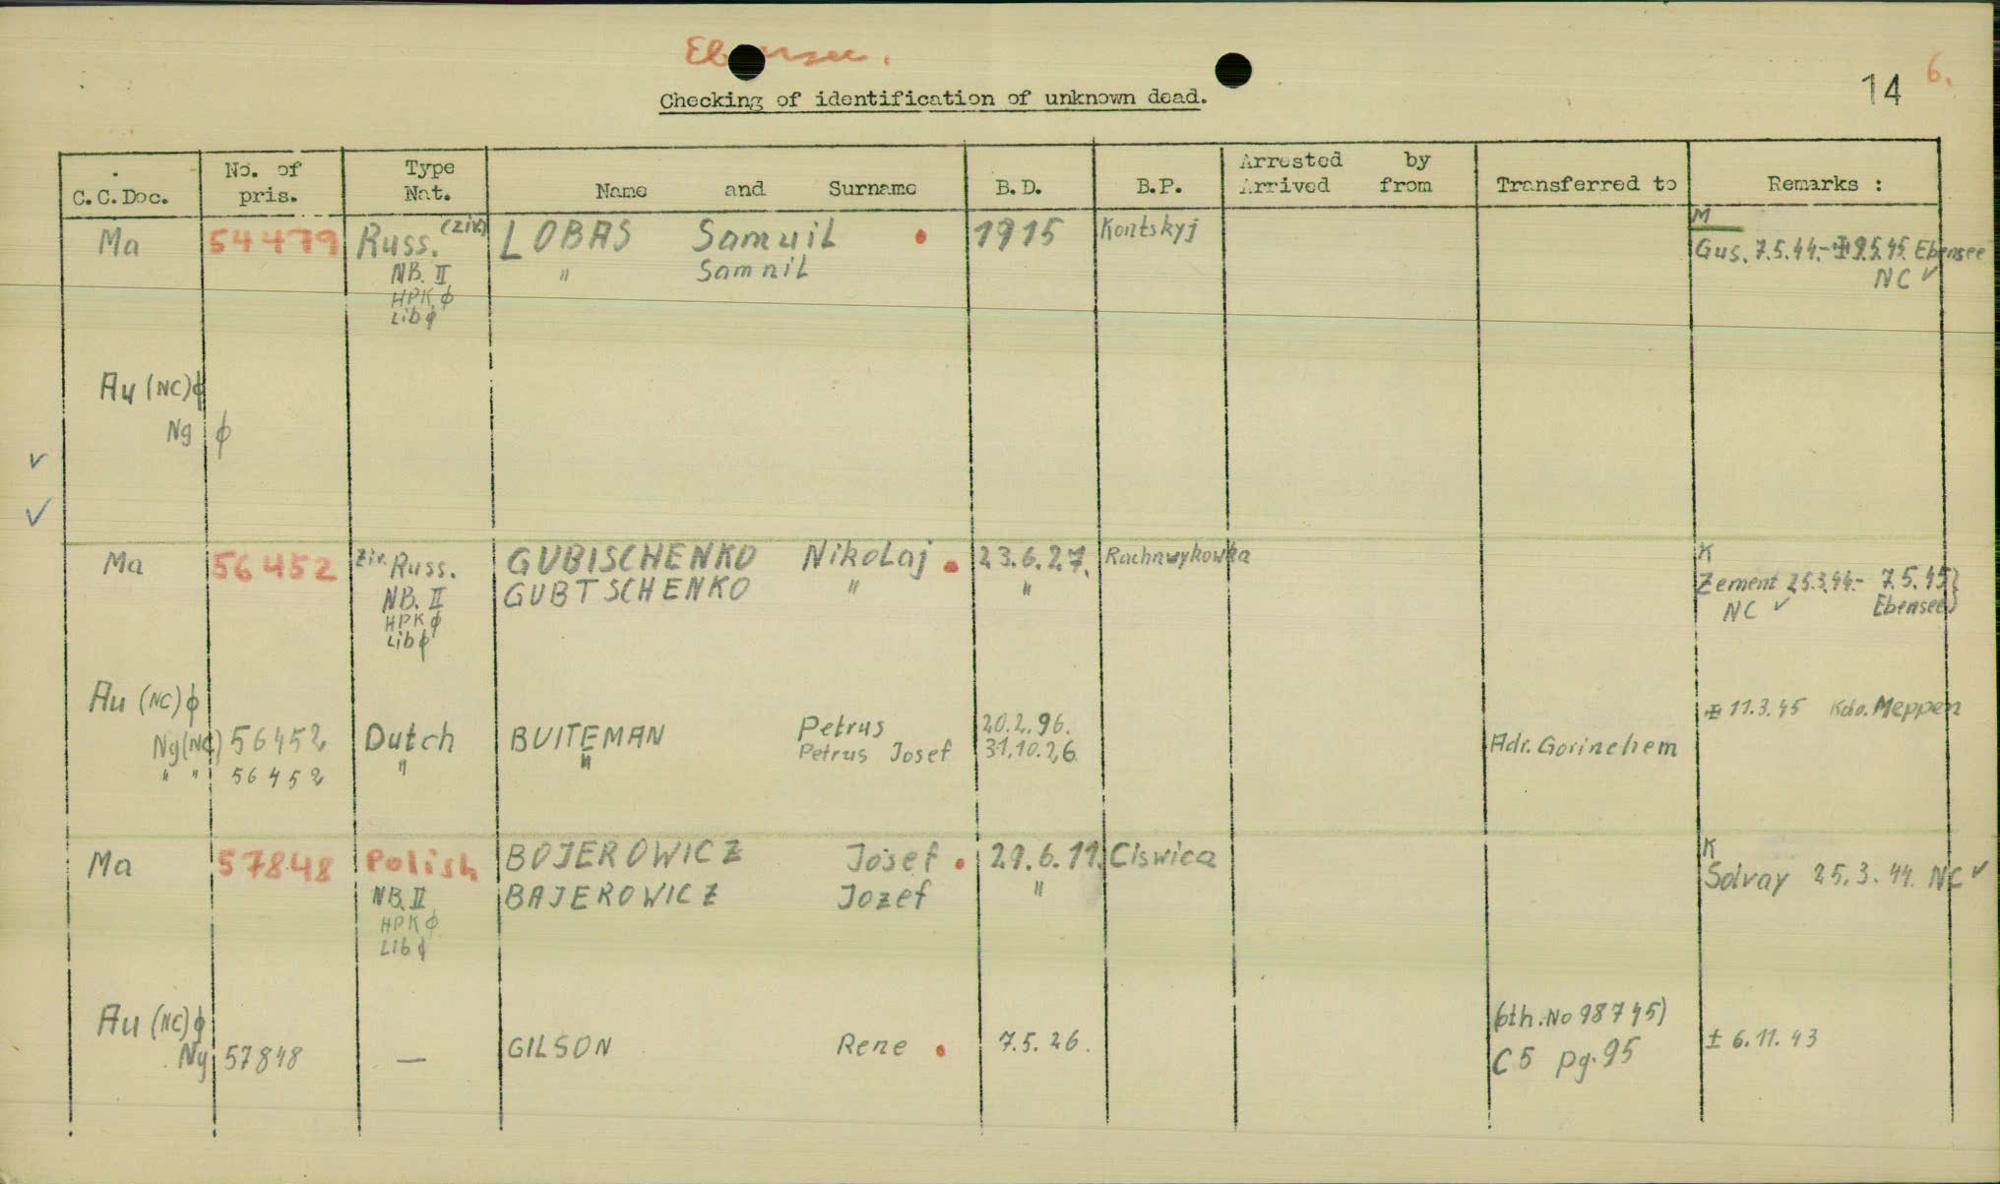 Ebensee.
14 6.
Checking of identification of unknown dead.
C.C.Doc. No. of pris. Type Nat. Name and Surname B.D. B.P. Arrested by Arrived from Transferred to Remarks :
Ma 54479 Russ. (ziv) LOBAS Samuil 1915 Kontskyj M
NB. II " Samnil Gus. 7.5.44.-✠9.5.45. Ebensee
HPK ϕ NC ✓
Lib ϕ
Au (NC) ϕ
Ng ϕ
✓
✓
Ma 56452 Ziv. Russ. GUBISCHENKO Nikolaj 23.6.27. Rachnwykowka K
NB. II GUBTSCHENKO " " Zement 25.3.44.- 7.5.45}
HPK ϕ NC ✓ Ebensee}
Lib ϕ
Au (NC) ϕ ✠ 11.3.45 Kdo. Meppen
Ng (NC) 56452 Dutch BUITEMAN Petrus 20.2.96. Adr. Gorinchem
" " 56452 " " Petrus Josef 31.10.26
Ma 57848 Polish BOJEROWICZ Josef 29.6.11. Ciswica K
NB. II BAJEROWICZ Jozef " Solvay 25.3.44. NC ✓
HPK ϕ
Lib ϕ
Au (NC) ϕ (oth. No 98745)
Ng 57848 — GILSON Rene 7.5.26. C5 pg. 95 ± 6.11.43